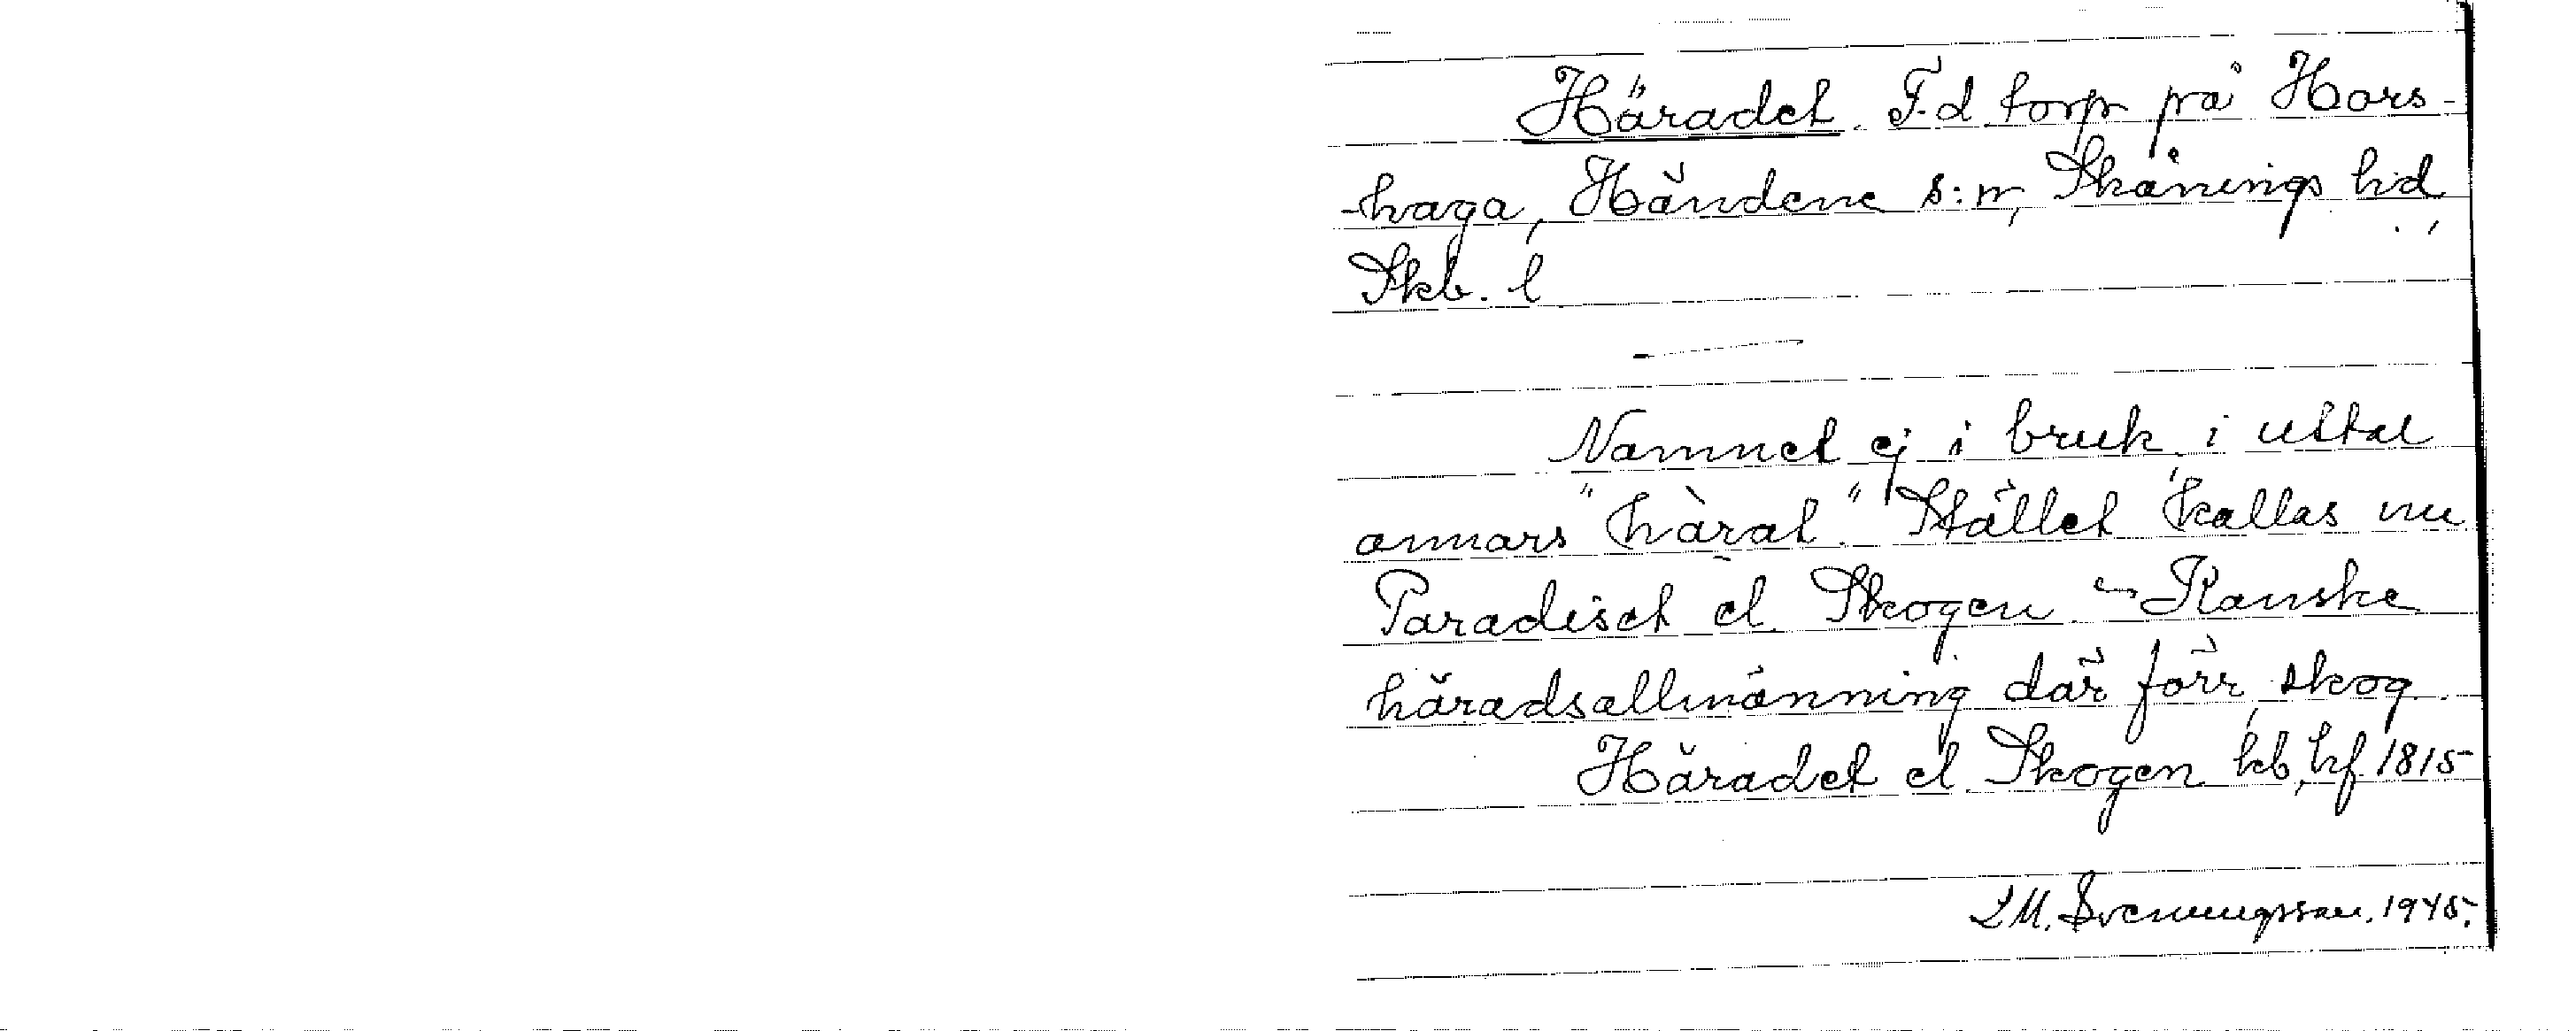 Häradet. F.d. torp på Hors-
-haga, Händene s:n, Skånings hd,
Skb. l
Namnet ej i bruk, i uttal
annars "hàrat". Stället kallas nu
Paradiset el. Skogen – Kanske
häradsallmänning där förr, skog.
Häradet el Skogen kb, hf 1815
L M. Svenungsson. 1945.